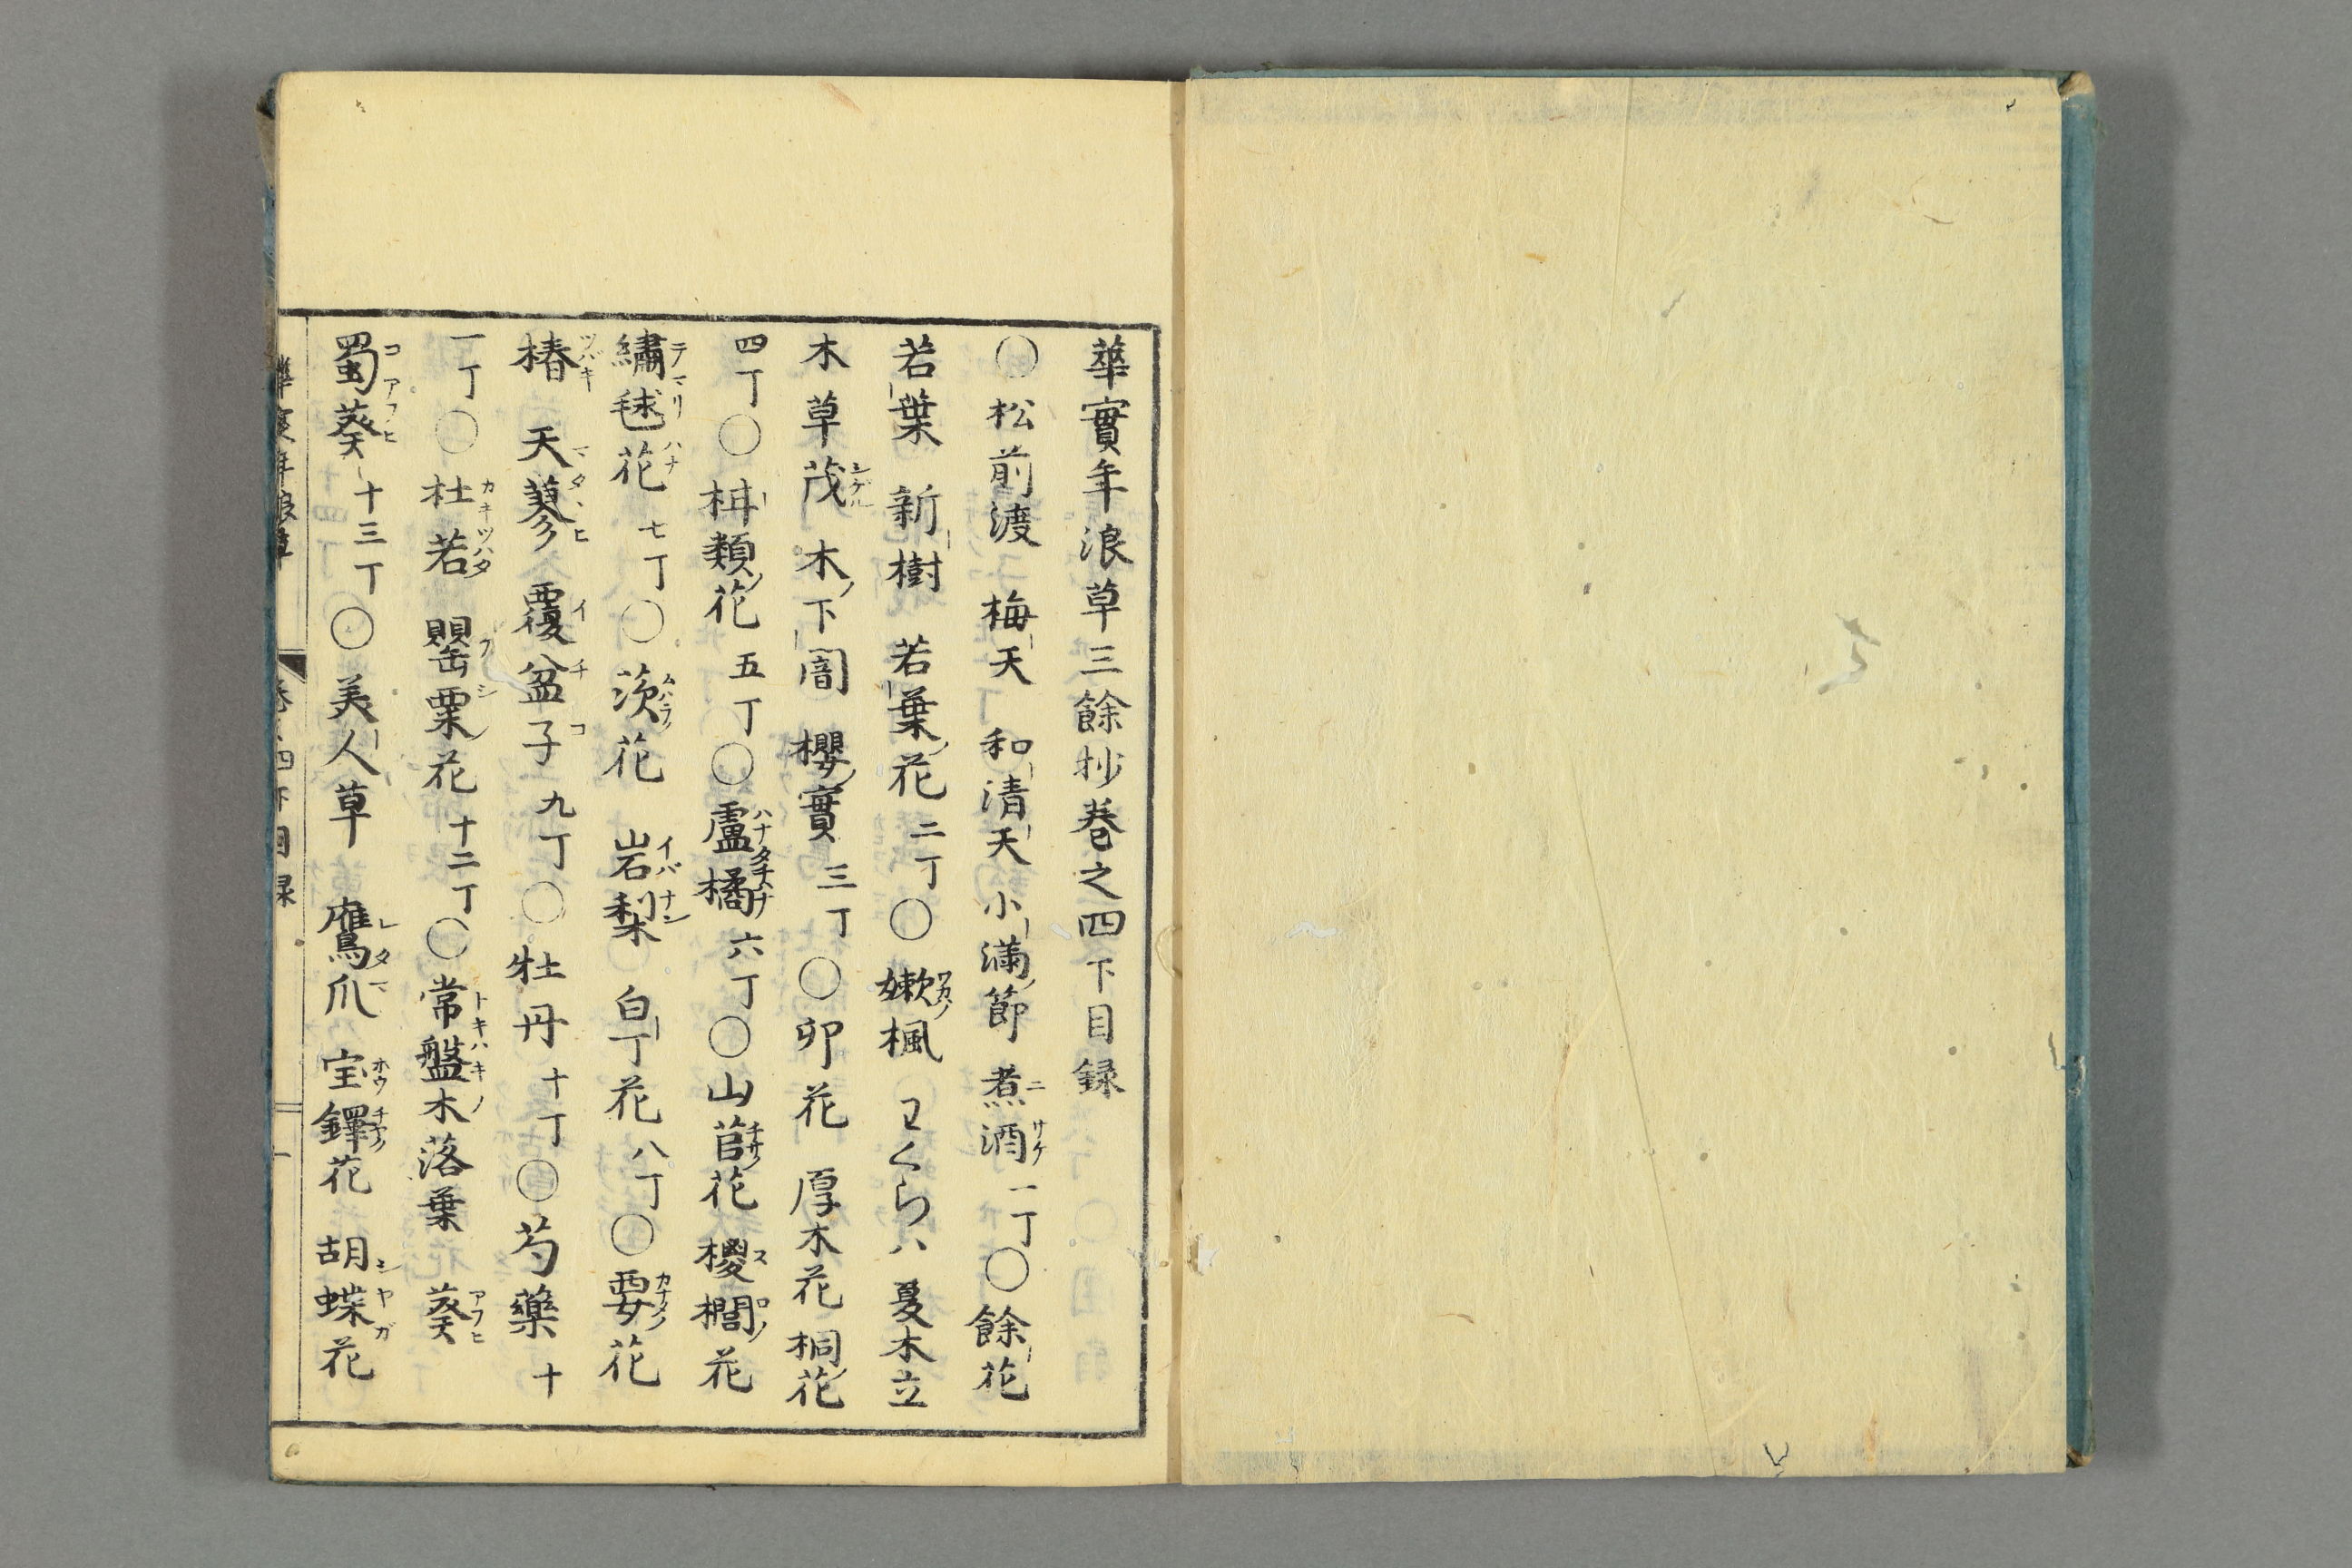 華實年浪草三餘抄巻之四下目録
○松前渡 梅天 和清天 小滿節 煮酒 一丁○餘花
若葉 新樹 若葉ノ花 二丁○嫩楓 わくらハ 夏木立
木草茂 木ノ下闇 櫻ノ實 三丁○卯花 厚木花 桐ノ花
四丁○柑類ノ花 五丁○盧橘 六丁○山萻花 椶櫚花
繡毬花 七丁○茨花 岩梨 白丁花 八丁○要花
椿 天蓼 覆盆子 九丁○牡丹 十丁○芍藥 十
一丁○杜若 罌粟花 十二丁○常盤木落葉 葵
蜀葵 十三丁○美人草 鷹爪 宝鐸花 胡蝶花